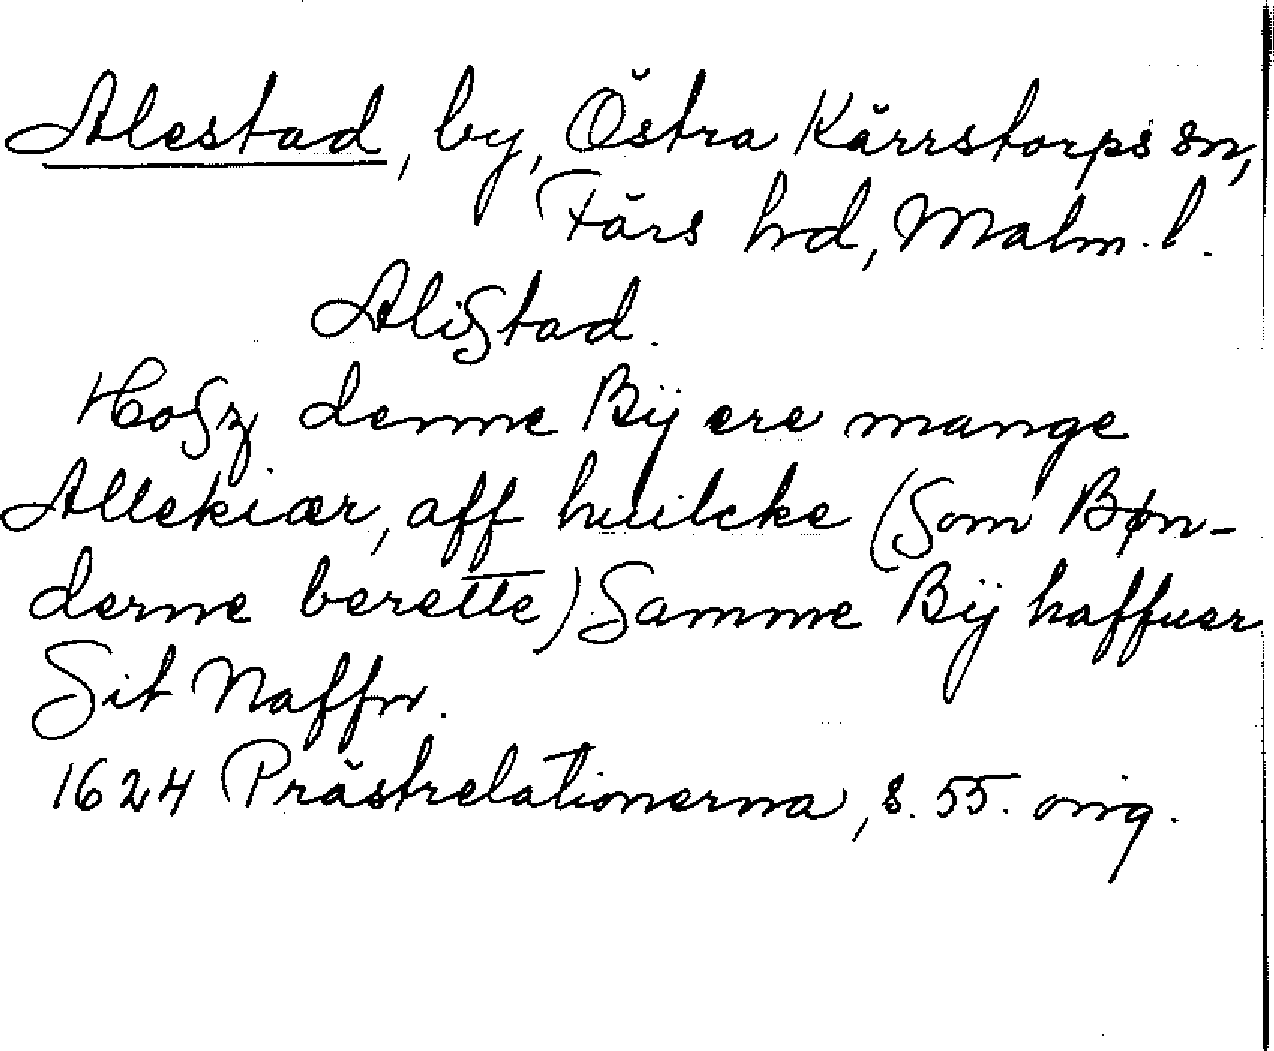 Alestad, by, Östra Kärrstorps sn,
Färs hd, Malm. l.
Alistad.
Hosz denne Bÿ ere mange
Allekiær, aff huilcke (som Bøn-
derne berette) Samme Bÿ haffuer
Sit Naffn.
1624 Prästrelationerna, s. 55. orig.